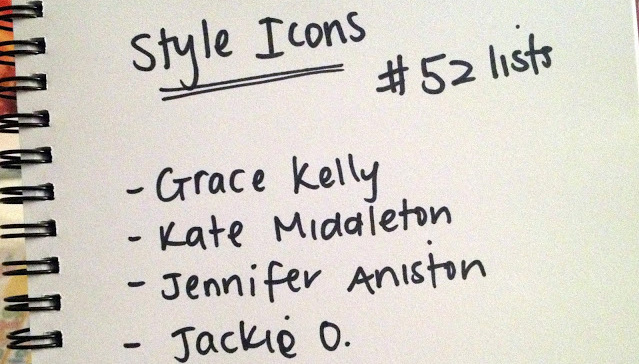 Style Icons
#52 lists
- Grace Kelly
- Kate Middleton
- Jennifer Aniston
- Jackie O.